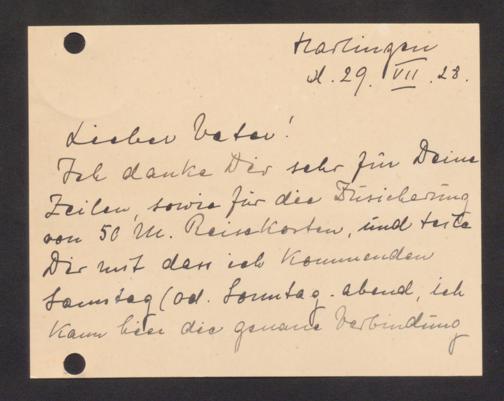 Harlingen
d. 29. VII. 28.
Lieber Vater!
Ich danke Dir sehr für Deine
Zeilen, sowie für die Zusicherung
von 50 M. Reisekosten, und teile
Dir mit dass ich kommenden
Samstag (od. Sonntag. abend, ich
kann hier die genaue Verbindung